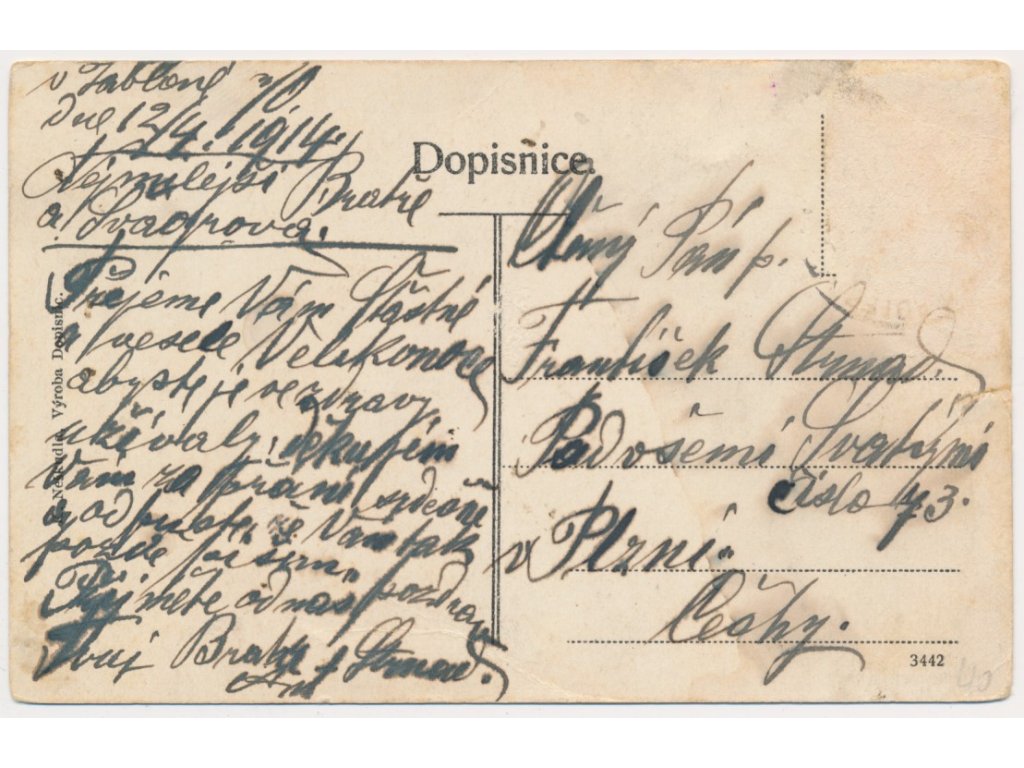 v Jabloné n/O
dne 12/4. 1914.
Nejmilejší Bratře
a Švagrová.
Přejeme Vám Šťastné
a veselé Velikonoce
abyste je ve zdraví
užívaly, děkujím
Vám za přání srdečně
a odpuste, že Vám tak
pozdě píšem.
Přijměte od nas pozdrav
Tvůj Bratr
Ant Strnad.
Výroba Dopisnic.
Dopisnice
Ctěný Pán p.
František Strnad.
Pod všemi Svatými
číslo 43.
v Plzni.
Čechy.
3442
40